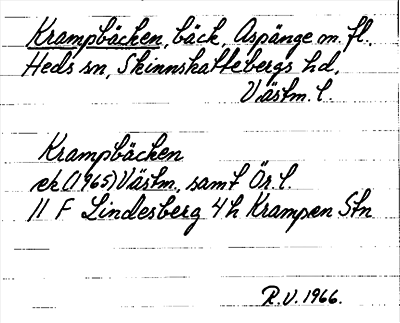 Krampbäcken, bäck, Aspänge m. fl.,
Heds sn, Skinnskattebergs hd,
Västm. l.
Krampbäcken
ek (1965) Västm., samt Ör. l.
11 F Lindesberg 4h Krampen Stn
R.V. 1966.